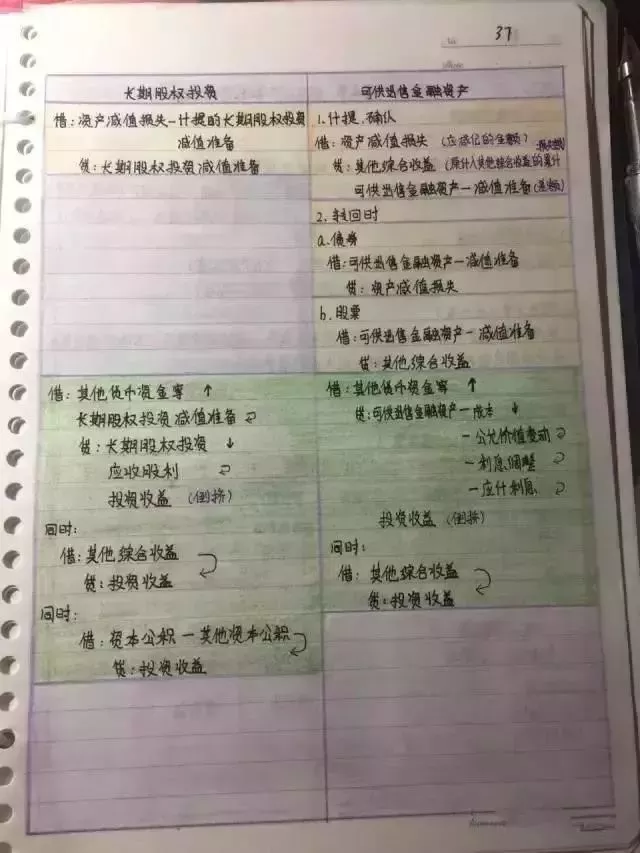 37
长期股权投资
借：资产减值损失—计提的长期股权投资
减值准备
贷：长期股权投资减值准备
借：其他货币资金等 ↑
长期股权投资减值准备
贷：长期股权投资 ↓
应收股利
投资收益 (倒挤)
同时：
借：其他综合收益
贷：投资收益
同时：
借：资本公积—其他资本公积
贷：投资收益
可供出售金融资产
1.计提、确认
借：资产减值损失 (应减记的金额)
贷：其他综合收益 (原计入其他综合收益的累计
可供出售金融资产—减值准备 (差额)
2. 转回时
a.债券
借：可供出售金融资产—减值准备
贷：资产减值损失
b.股票
借：可供出售金融资产—减值准备
贷：其他综合收益
借：其他货币资金等 ↑
贷：可供出售金融资产—成本 ↓
—公允价值变动
—利息调整
—应计利息
投资收益 (倒挤)
同时：
借：其他综合收益
贷：投资收益